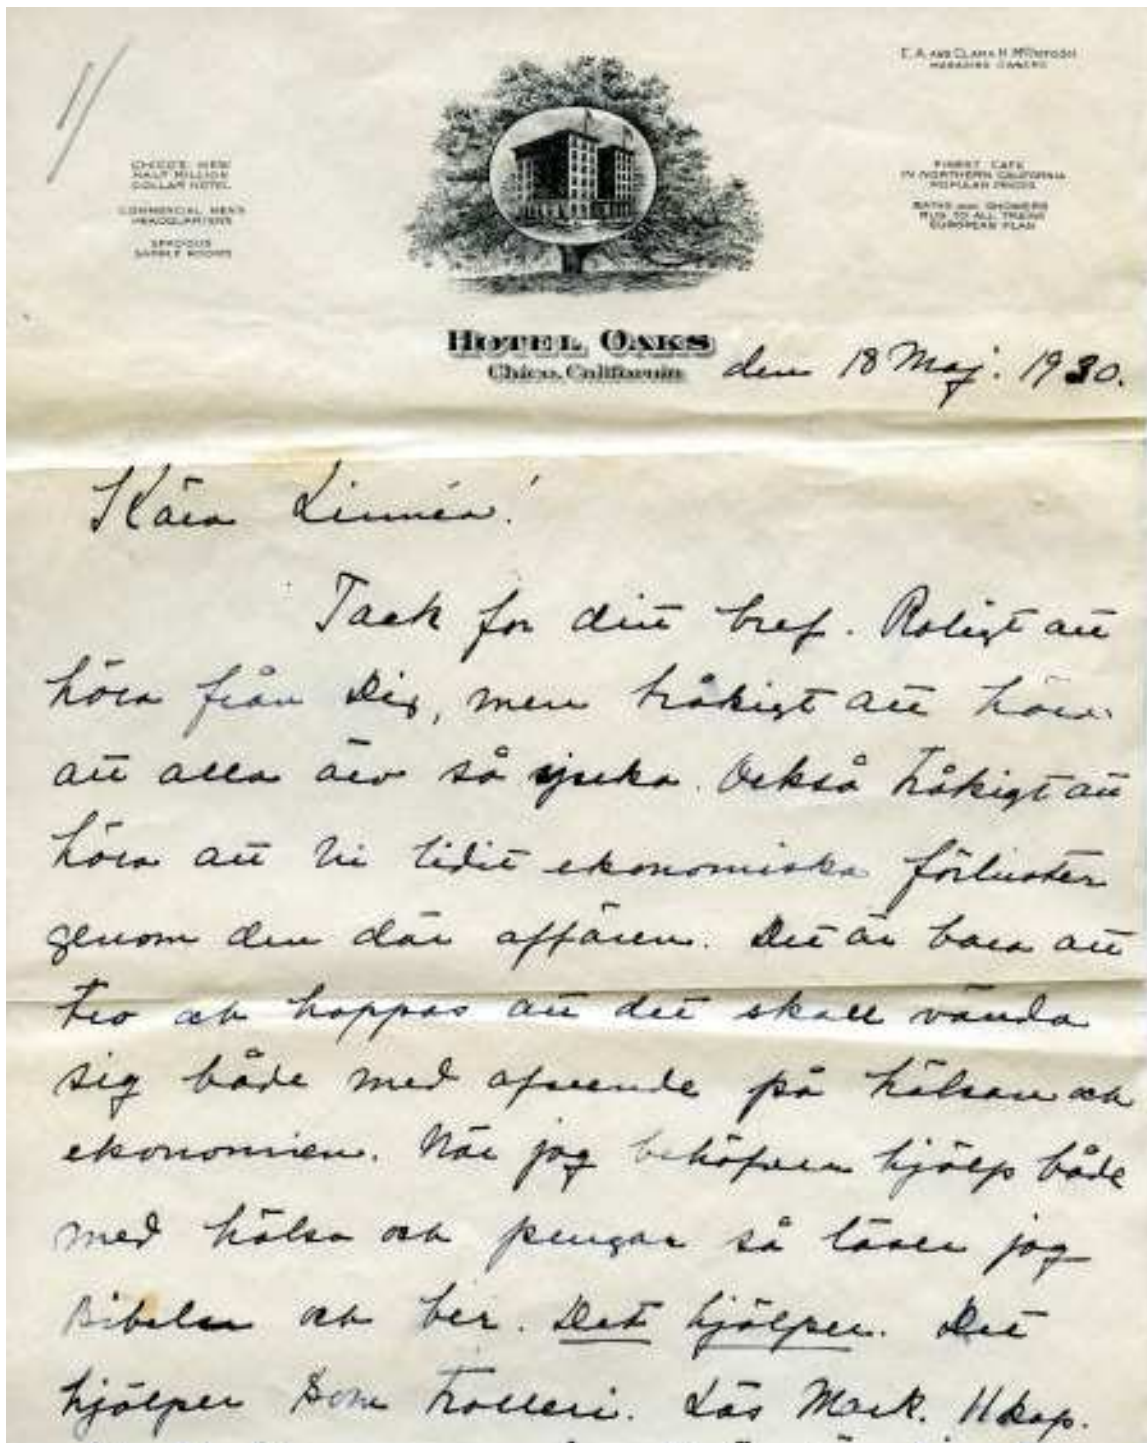 E. A. AND CLARA H.
MANAGING OWNERS
CHICO'S NEW
HALF MILLION
DOLLAR HOTEL
COMMERCIAL MEN'S
HEADQUARTERS
SPACIOUS
SAMPLE ROOMS
FINEST CAFE
IN NORTHERN CALIFORNIA
POPULAR PRICES
BATHS AND SHOWERS
BUS TO ALL TRAINS
EUROPEAN PLAN
HOTEL OAKS
Chico, California
den 18 Maj. 1930.
Kära Linnéa!
Tack for ditt bref. Roligt att
höra från Dig, men tråkigt att höra
att alla äro så sjuka. Också tråkigt att
höra att Ni lidit ekonomiska förluster
genom den där affären. Det är bara att
tro och hoppas att det skall vända
sig både med afseende på hälsan och
ekonomien. När jag behöfver hjälp både
med hälsa och pengar så läser jag
Bibeln och ber. Det hjälper. Det
hjälper som trolleri. Läs Mark. 11 kap.